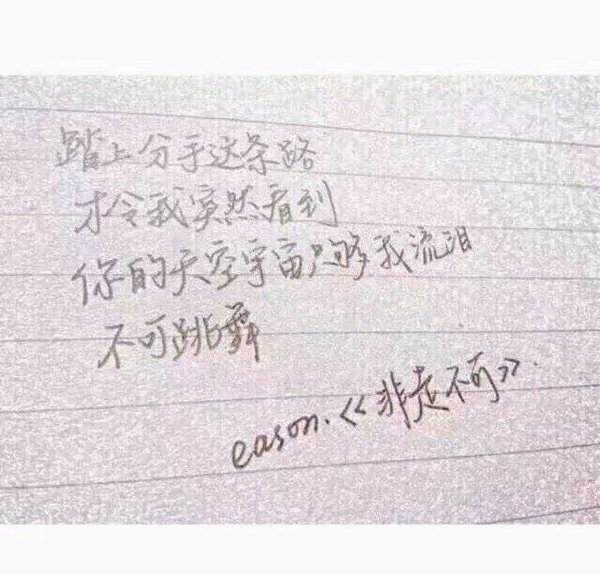 踏上分手这条路
才令我突然看到
你的天空宇宙只够我流泪
不可跳舞
eason.《非走不可》.